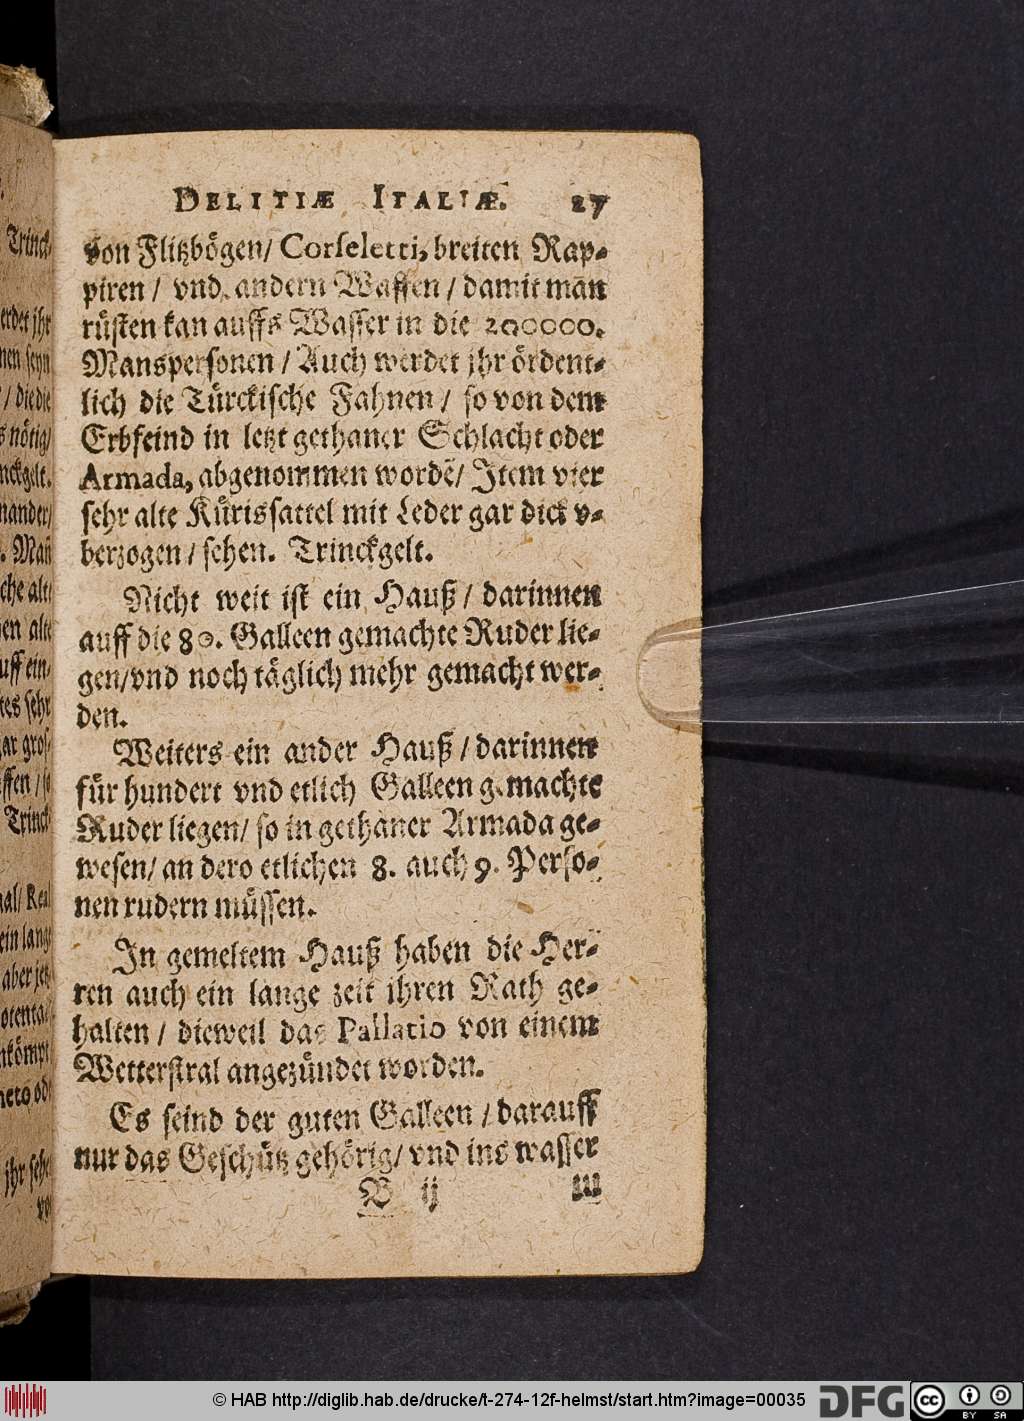 DELITIÆ ITALIÆ. 27
von Flitzbögen/ Corseletti, breiten Rap-
piren / vnd andern Waffen / damit man
rüsten kan auffs Wasser in die 200000.
Manspersonen / Auch werdet jhr ördent-
lich die Türckische Fahnen / so von dem
Erbfeind in letzt gethaner Schlacht oder
Armada, abgenommen wordẽ/ Item vier
sehr alte Kürissattel mit Leder gar dick v-
berzogen / sehen. Trinckgelt.
Nicht weit ist ein Hauß / darinnen
auff die 80. Galleen gemachte Ruder lie-
gen/vnd noch täglich mehr gemacht wer-
den.
Weiters ein ander Hauß / darinnen
für hundert vnd etlich Galleen gemachte
Ruder liegen/ so in gethaner Armada ge-
wesen/ an dero etlichen 8. auch 9. Perso-
nen rudern müssen.
In gemeltem Hauß haben die Her-
ren auch ein lange zeit ihren Rath ge-
halten / dieweil das Pallatio von einem
Wetterstral angezündet worden.
Es seind der guten Galleen / darauff
nur das Geschütz gehörig/ vnd ins wasser
B ij
Trinck-
erdet jhr
nen seyn
/ die die
s nötig/
nckgelt.
nander/
. Mañ
che alt/
en alte
uff ein-
tes sehr
ar gros-
ffen / so
Trinck-
al/ Rea
ein lang
aber jetz
otenta-
nkömpt
neto od
jhr sehe
vo
© HAB http://diglib.hab.de/drucke/t-274-12f-helmst/start.htm?image=00035
DFG
cc
BY SA